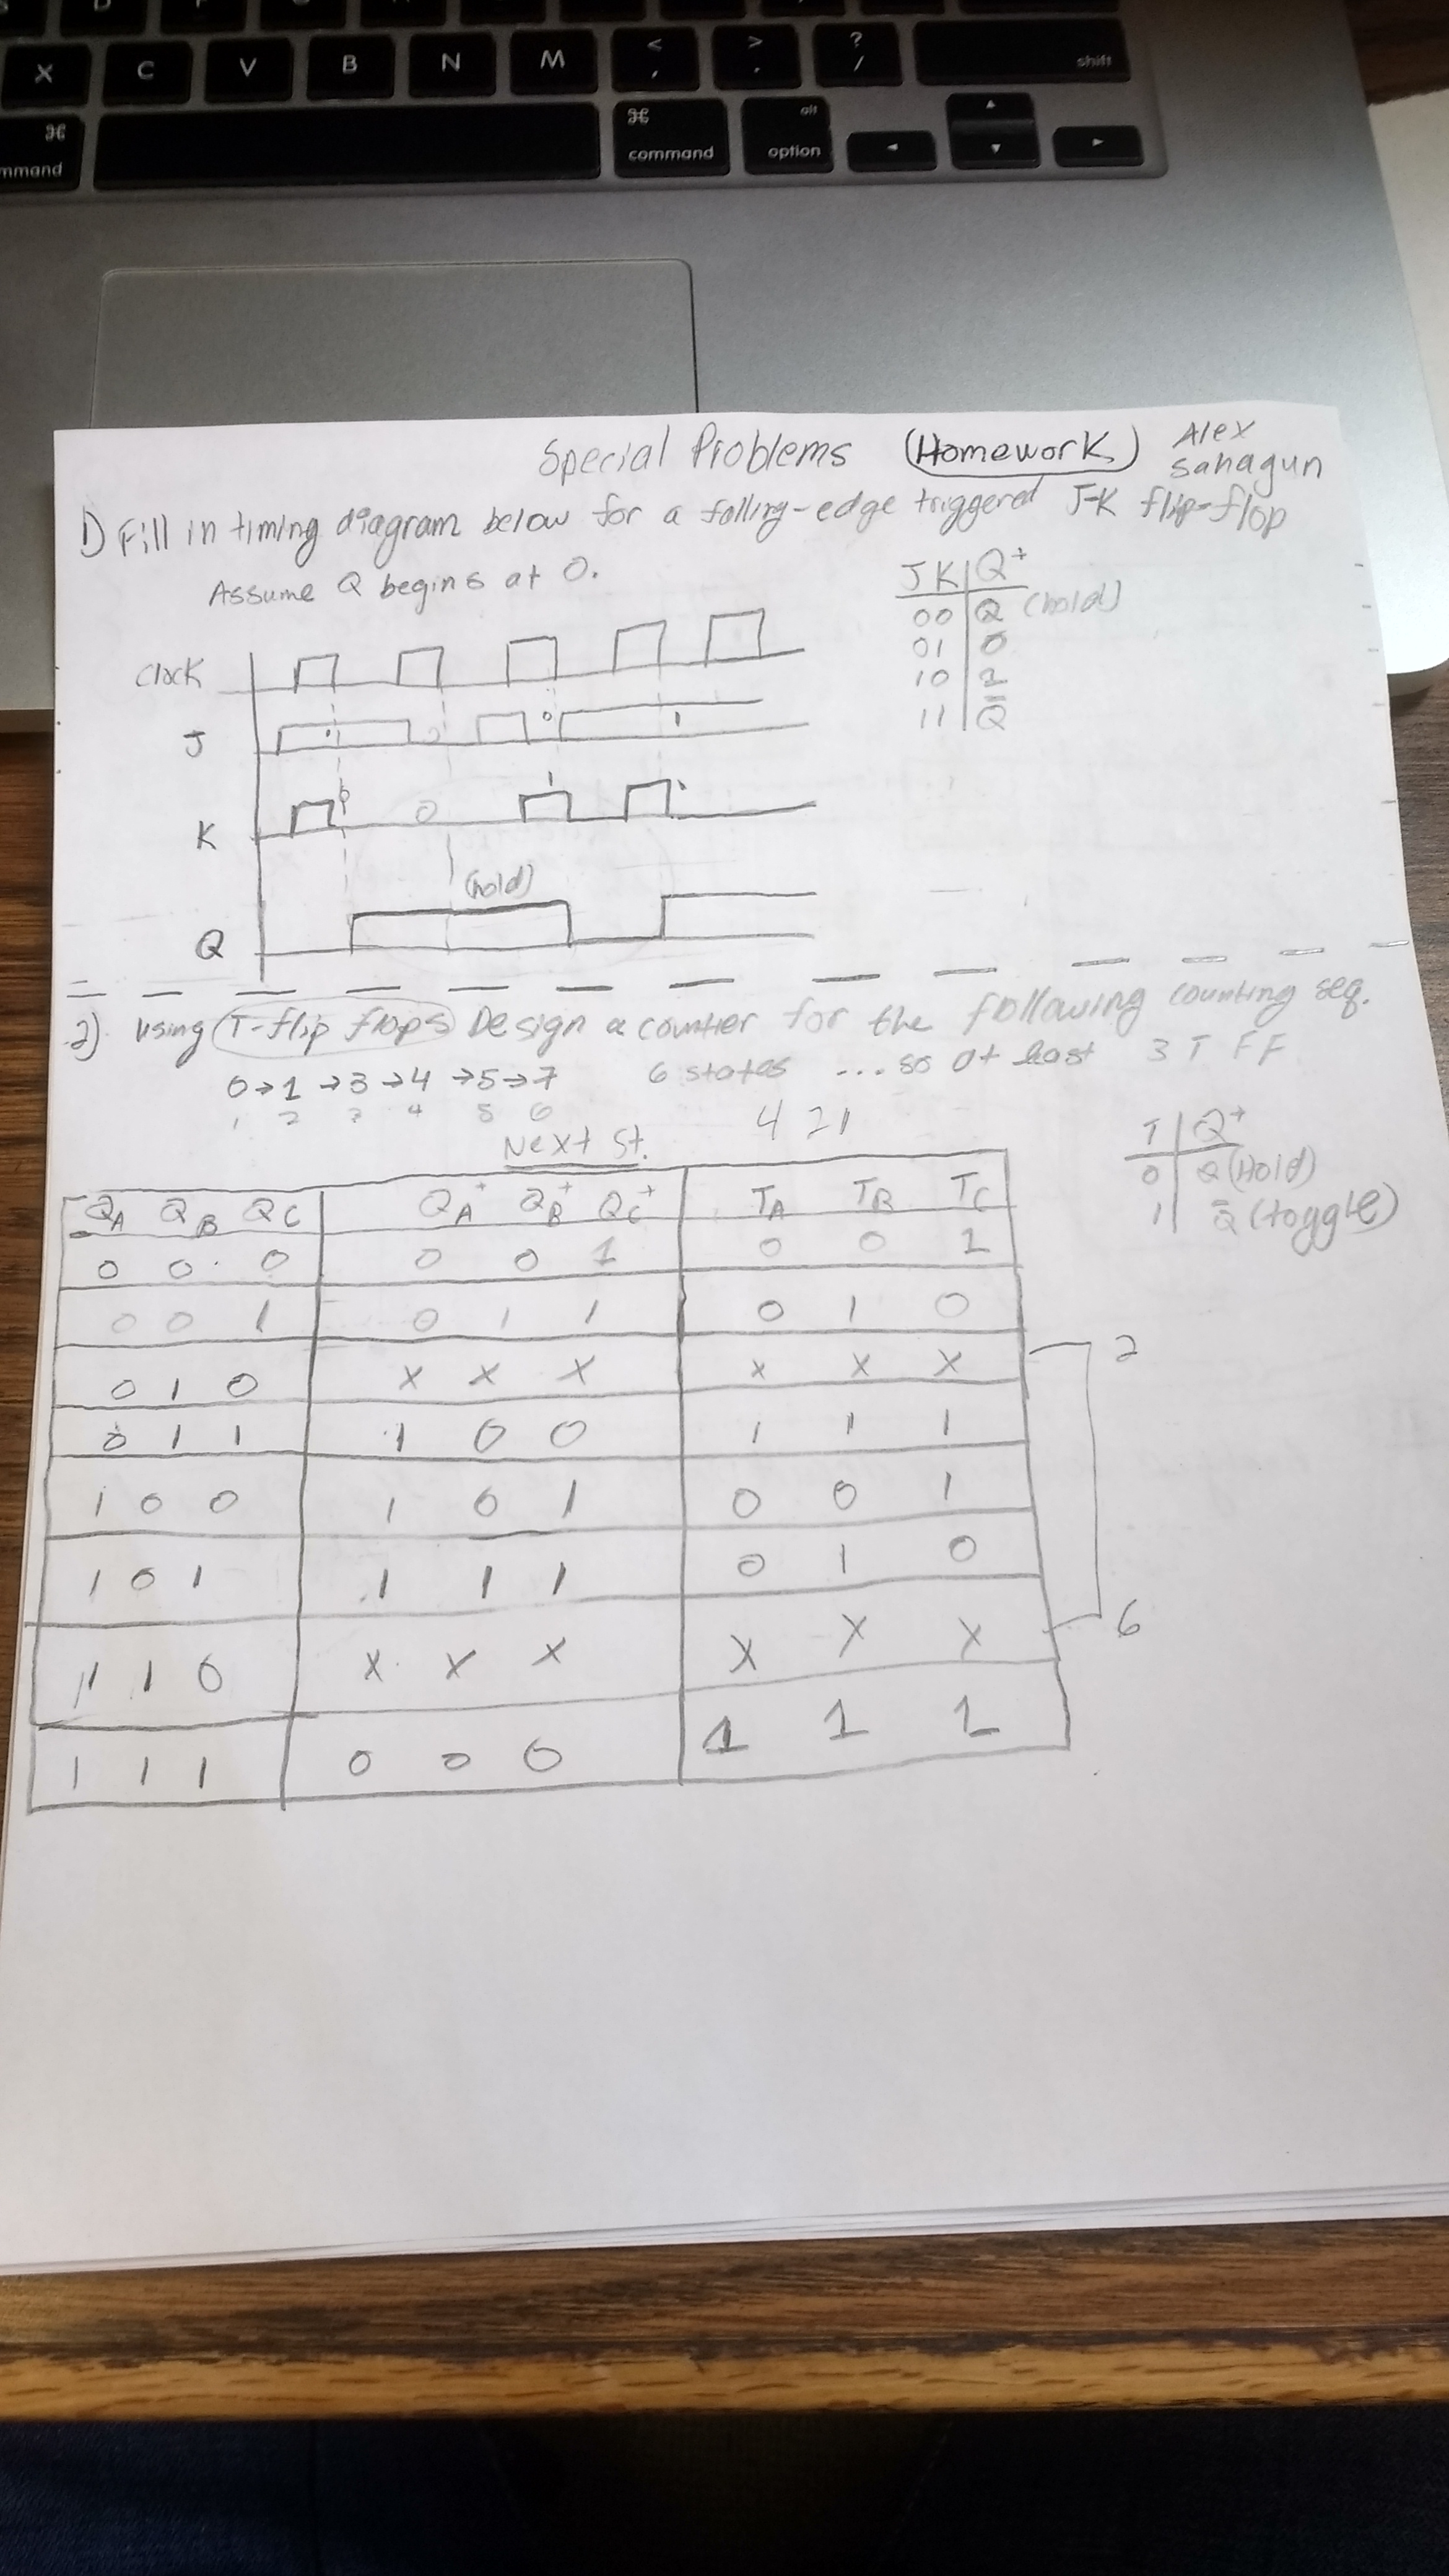 X C V B N M < , > . ? / shift
⌘ command ⌘ command alt option
Special Problems (Homework) Alex
Sahagun
1) Fill in timing diagram below for a falling-edge triggered J-K flip-flop
Assume Q begins at 0.
J K | Q+
00 | Q (hold)
01 | 0
10 | 1
11 | Q̅
Clock
J 1 0 0 1
K 0 0 1 1
(hold)
Q
2) Using T-flip flops Design a counter for the following counting seq.
0→1→3→4→5→7 6 states ...so at least 3 T FF
1 2 3 4 5 6
4 2 1
Next St.
T | Q+
0 | Q (Hold)
1 | Q̅ (toggle)
QA QB QC QA+ QB+ QC+ TA TB TC
0 0 0 0 0 1 0 0 1
0 0 1 0 1 1 0 1 0
0 1 0 X X X X X X 2
0 1 1 1 0 0 1 1 1
1 0 0 1 0 1 0 0 1
1 0 1 1 1 1 0 1 0
1 1 0 X X X X X X 6
1 1 1 0 0 0 1 1 1